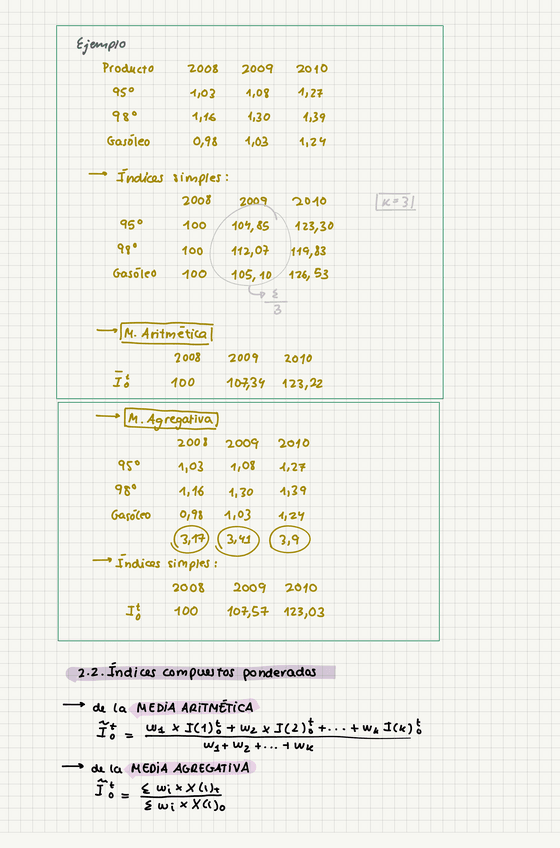 Ejemplo
Producto 2008 2009 2010
95º 1,03 1,08 1,27
98º 1,16 1,30 1,39
Gasóleo 0,98 1,03 1,24
→ Índices simples:
2008 2009 2010 K=3
95º 100 104,85 123,30
98º 100 112,07 119,83
Gasóleo 100 105,10 126,53
Σ
3
→ M. Aritmética
2008 2009 2010
Ī₀ᵗ 100 107,34 123,22
→ M. Agregativa
2008 2009 2010
95º 1,03 1,08 1,27
98º 1,16 1,30 1,39
Gasóleo 0,98 1,03 1,24
3,17 3,41 3,9
→ Índices simples:
2008 2009 2010
I₀ᵗ 100 107,57 123,03
2.2. Índices compuestos ponderados
→ de la MEDIA ARITMÉTICA
Ĩ₀ᵗ = w₁ x I(1)₀ᵗ + w₂ x I(2)₀ᵗ + ... + wₖ I(k)₀ᵗ
w₁ + w₂ + ... + wₖ
→ de la MEDIA AGREGATIVA
Ĩ₀ᵗ = Σ wᵢ x X(i)ₜ
Σ wᵢ x X(i)₀